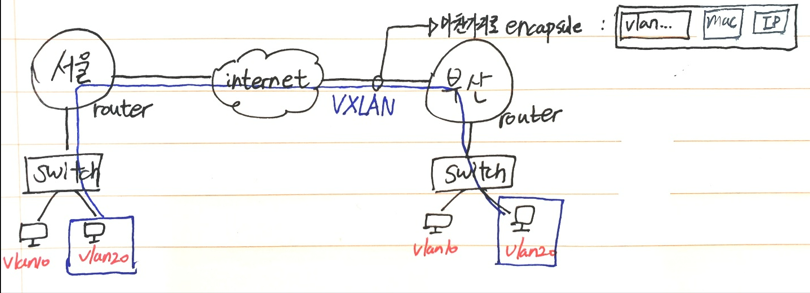 마찬가지로 encapsule : vlan... mac IP
서울
internet
부산
router
VXLAN
router
switch
switch
vlan10
vlan20
vlan10
vlan20